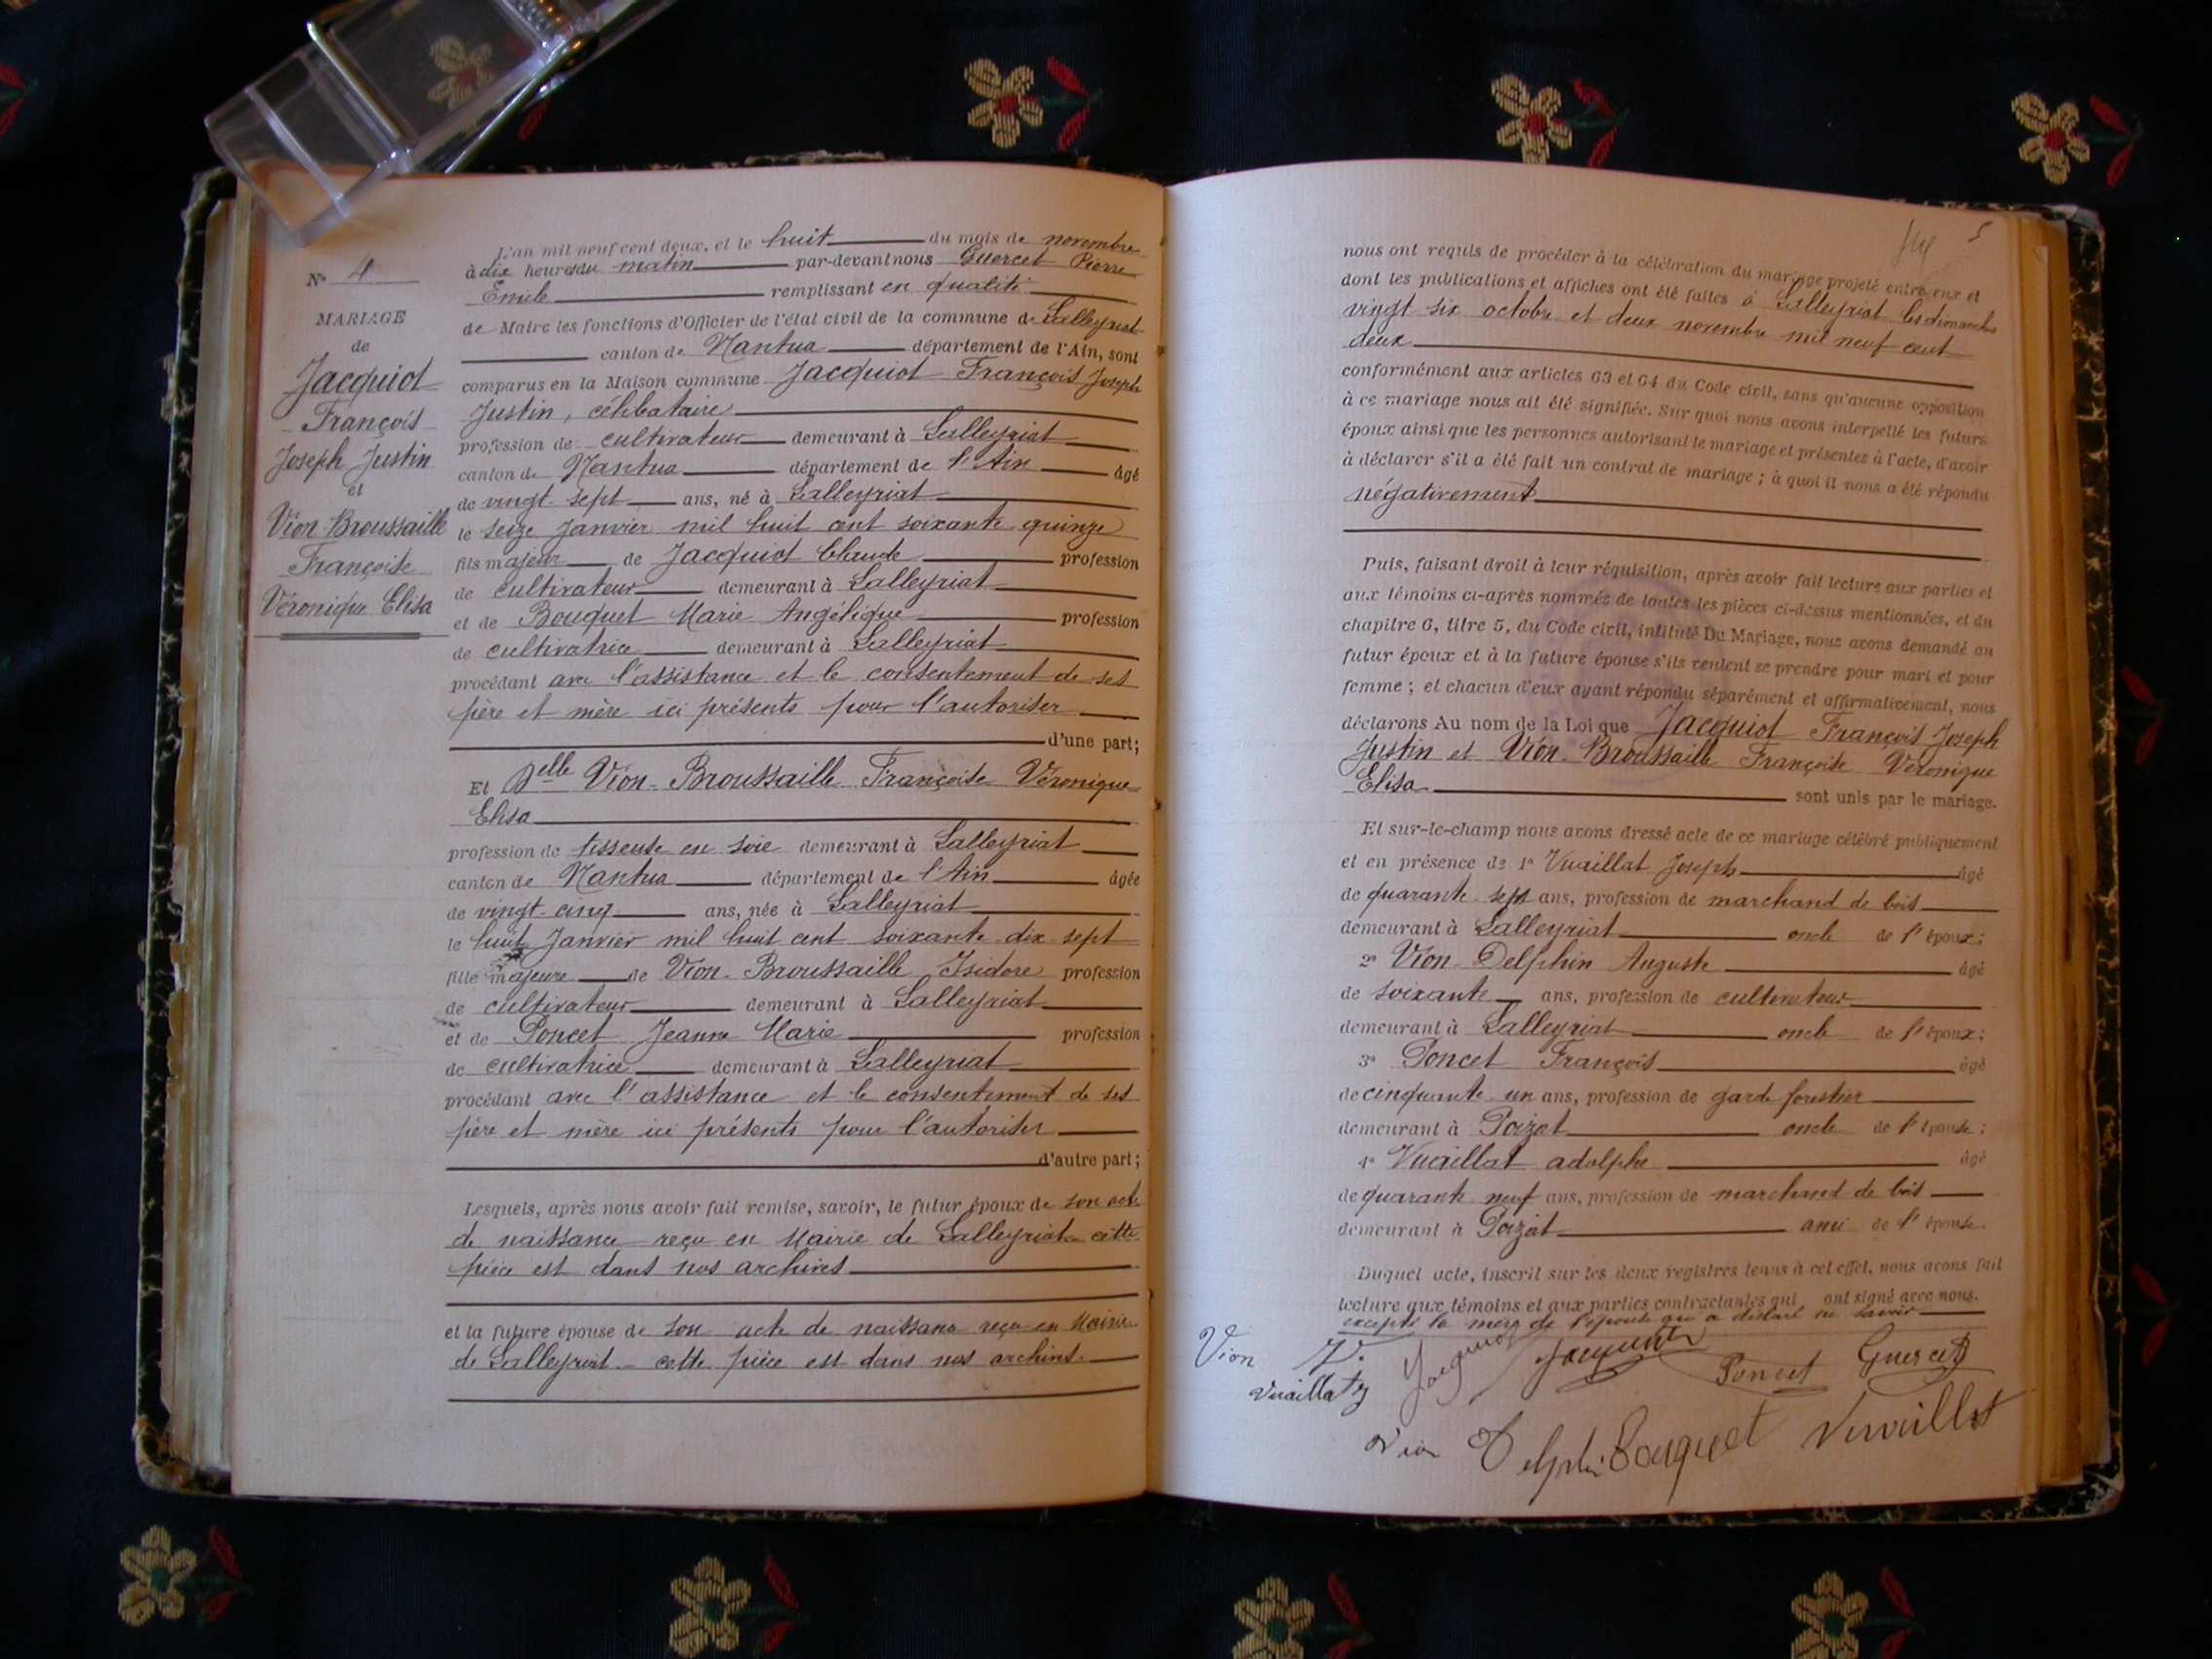 L'an mil neuf cent deux, et le huit du mois de novembre
à dix heures du matin par-devant nous Guercet Pierre
Emile remplissant en qualité
de Maire les fonctions d'Officier de l'état civil de la commune de Lalleyriat
canton de Nantua département de l'Ain, sont
comparus en la Maison commune Jacquiot François Joseph
Justin, célibataire
profession de cultivateur demeurant à Lalleyriat
canton de Nantua département de l'Ain âgé
de vingt sept ans, né à Lalleyriat
le seize Janvier mil huit cent soixante quinze
fils majeur de Jacquiot Claude profession
de cultivateur demeurant à Lalleyriat
et de Bouquet Marie Angélique profession
de cultivatrice demeurant à Lalleyriat
procédant avec l'assistance et le consentement de ses
père et mère ici présents pour l'autoriser
d'une part;
Et Delle Vion-Broussaille Françoise Véronique
Elisa
profession de tisseuse en soie demeurant à Lalleyriat
canton de Nantua département de l'Ain âgée
de vingt-cinq ans, née à Lalleyriat
le huit Janvier mil huit cent soixante dix sept
fille majeure de Vion-Broussaille Isidore profession
de cultivateur demeurant à Lalleyriat
et de Poncet Jeanne Marie profession
de cultivatrice demeurant à Lalleyriat
procédant avec l'assistance et le consentement de ses
père et mère ici présents pour l'autoriser
d'autre part;
Lesquels, après nous avoir fait remise, savoir, le futur époux de son acte
de naissance reçu en Mairie de Lalleyriat cette
pièce est dans nos archives
et la future épouse de son acte de naissance reçu en Mairie
de Lalleyriat - cette pièce est dans nos archives.
N° 4
MARIAGE
de
Jacquiot
François
Joseph Justin
et
Vion Broussaille
Françoise
Véronique Elisa
5
nous ont requis de procéder à la célébration du mariage projeté entre eux et
dont les publications et affiches ont été faites à Lalleyriat les dimanches
vingt six octobre et deux novembre mil neuf cent
deux
conformément aux articles 63 et 64 du Code civil, sans qu'aucune opposition
à ce mariage nous ait été signifiée. Sur quoi nous avons interpellé les futurs
époux ainsi que les personnes autorisant le mariage et présentes à l'acte, d'avoir
à déclarer s'il a été fait un contrat de mariage ; à quoi il nous a été répondu
négativement
Puis, faisant droit à leur réquisition, après avoir fait lecture aux parties et
aux témoins ci-après nommés de toutes les pièces ci-dessus mentionnées, et du
chapitre 6, titre 5, du Code civil, intitulé Du Mariage, nous avons demandé au
futur époux et à la future épouse s'ils veulent se prendre pour mari et pour
femme ; et chacun d'eux ayant répondu séparément et affirmativement, nous
déclarons Au nom de la Loi que Jacquiot François Joseph
Justin et Vion-Broussaille Françoise Véronique
Elisa sont unis par le mariage.
Et sur-le-champ nous avons dressé acte de ce mariage célébré publiquement
et en présence de 1° Vuaillat Joseph âgé
de quarante sept ans, profession de marchand de bois
demeurant à Lalleyriat oncle de l'époux;
2° Vion Delphin Auguste âgé
de soixante ans, profession de cultivateur
demeurant à Lalleyriat oncle de l'époux;
3° Poncet François âgé
de cinquante un ans, profession de garde forestier
demeurant à Poizat oncle de l'épouse;
4° Vuaillat adolphe âgé
de quarante neuf ans, profession de marchand de bois
demeurant à Poizat ami de l'épouse.
Duquel acte, inscrit sur les deux registres tenus à cet effet, nous avons fait
lecture aux témoins et aux parties contractantes qui ont signé avec nous.
excepté la mère de l'épouse qui a déclaré ne savoir
Vion V. Jacquiot Jacquiot Poncet Guercet
Vuaillat
Vion Delphin Bouquet Vuaillat